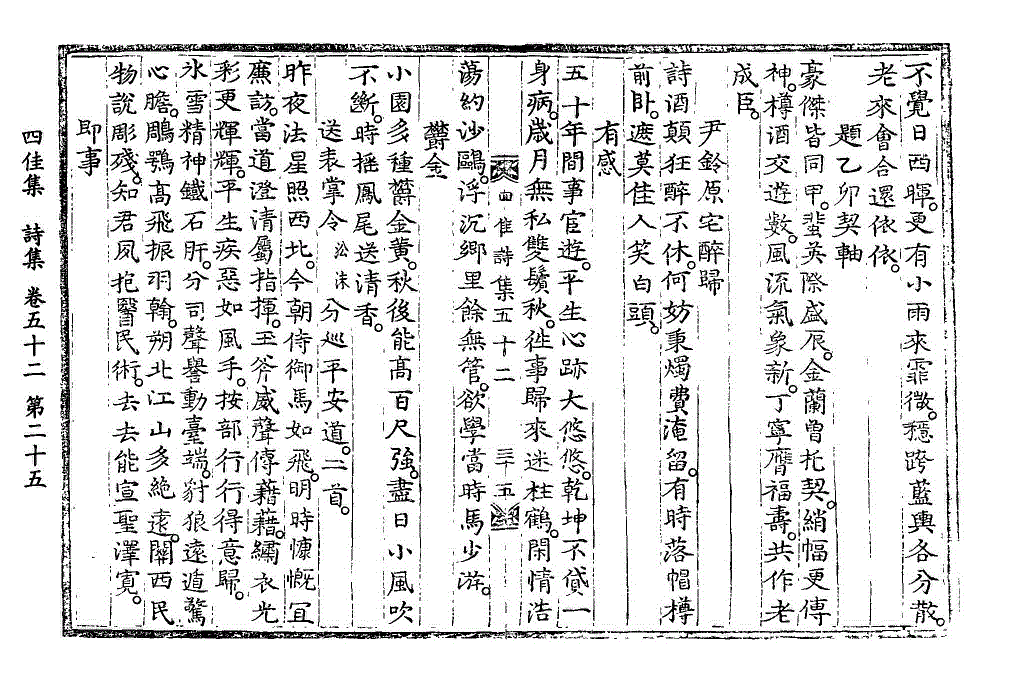 不覺日西暉。更有小雨來霏微。穩跨藍輿各分散。
老來會合還依依。
題乙卯契軸
豪傑皆同甲。蜚英際盛辰。金蘭曾托契。綃幅更傳
神。樽酒交遊數。風流氣象新。丁寧膺福壽。共作老
成臣。
尹鈴原宅醉歸
詩酒顛狂醉不休。何妨秉燭費淹留。有時落帽樽
前臥。遮莫佳人笑白頭。
有感
五十年間事宦遊。平生心跡大悠悠。乾坤不貸一
身病。歲月無私雙鬢秋。徃事歸來迷柱鶴。閑情浩
四佳詩集五十二 三十五
蕩約沙鷗。浮沉鄉里餘無管。欲學當時馬少游。
鬱金
小園多種鬱金黃。秋後能高百尺強。盡日小風吹
不斷。時搖鳳尾送清香。
送表掌令 沿沫 分巡平安道。二首。
昨夜法星照西北。今朝侍御馬如飛。明時慷慨宜
廉訪。當道澄清屬指揮。玉斧威聲傳藉藉。繡衣光
彩更輝輝。平生疾惡如風手。按部行行得意歸。
氷雪精神鐵石肝。分司聲譽動臺端。豺狼遠遁驚
心膽。鵰鶚高飛振羽翰。朔北江山多絶遠。關西民
物說彫殘。知君夙抱醫民術。去去能宣聖澤寬。
即事
四佳集 詩集 卷五十二 第二十五